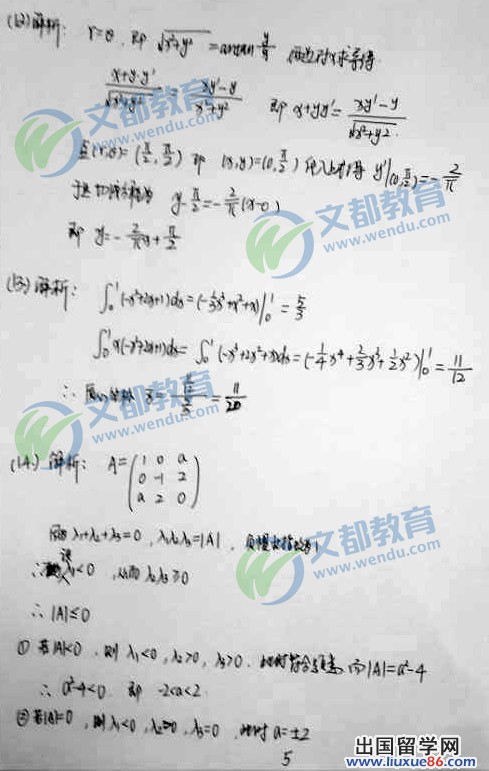 (12) 解析: r=θ, 即 √(x²+y²) = arctan y/x 两边对x求导得
(x+y·y')/√(x²+y²) = (xy'-y)/(x²+y²) 即 x+yy' = (xy'-y)/√(x²+y²)
点(r,θ)=(π/2, π/2) 即 (x,y)=(0, π/2) 代入上式得 y'|(0,π/2) = -2/π
于是切线方程为 y-π/2 = -2/π(x-0)
即 y = -2/π x + π/2
(13) 解析: ∫₀¹(-x²+2x+1)dx = (-1/3x³+x²+x)|₀¹ = 5/3
∫₀¹x(-x²+2x+1)dx = ∫₀¹(-x³+2x²+x)dx = (-1/4x⁴+2/3x³+1/2x²)|₀¹ = 11/12
∴ 质心坐标 x = (11/12)/(5/3) = 11/20
(14) 解析: A = (1 0 a
0 -1 2
a 2 0)
因为 λ₁+λ₂+λ₃=0, λ₁λ₂λ₃=|A|, 负惯性指数为1
∴ 设 λ₁<0, 从而 λ₂λ₃≥0
∴ |A|≤0
① 若|A|<0, 则 λ₁<0, λ₂>0, λ₃>0, 此时符合题意, 而|A|=a²-4
∴ a²-4<0 即 -2<a<2
② 若|A|=0, 则 λ₁<0, λ₂>0, λ₃=0, 此时 a=±2
5
文都教育
www.wendu.com
文都教育
www.wendu.com
文都教育
www.wendu.com
文都教育
www.wendu.com
出国留学网
www.liuxue86.com